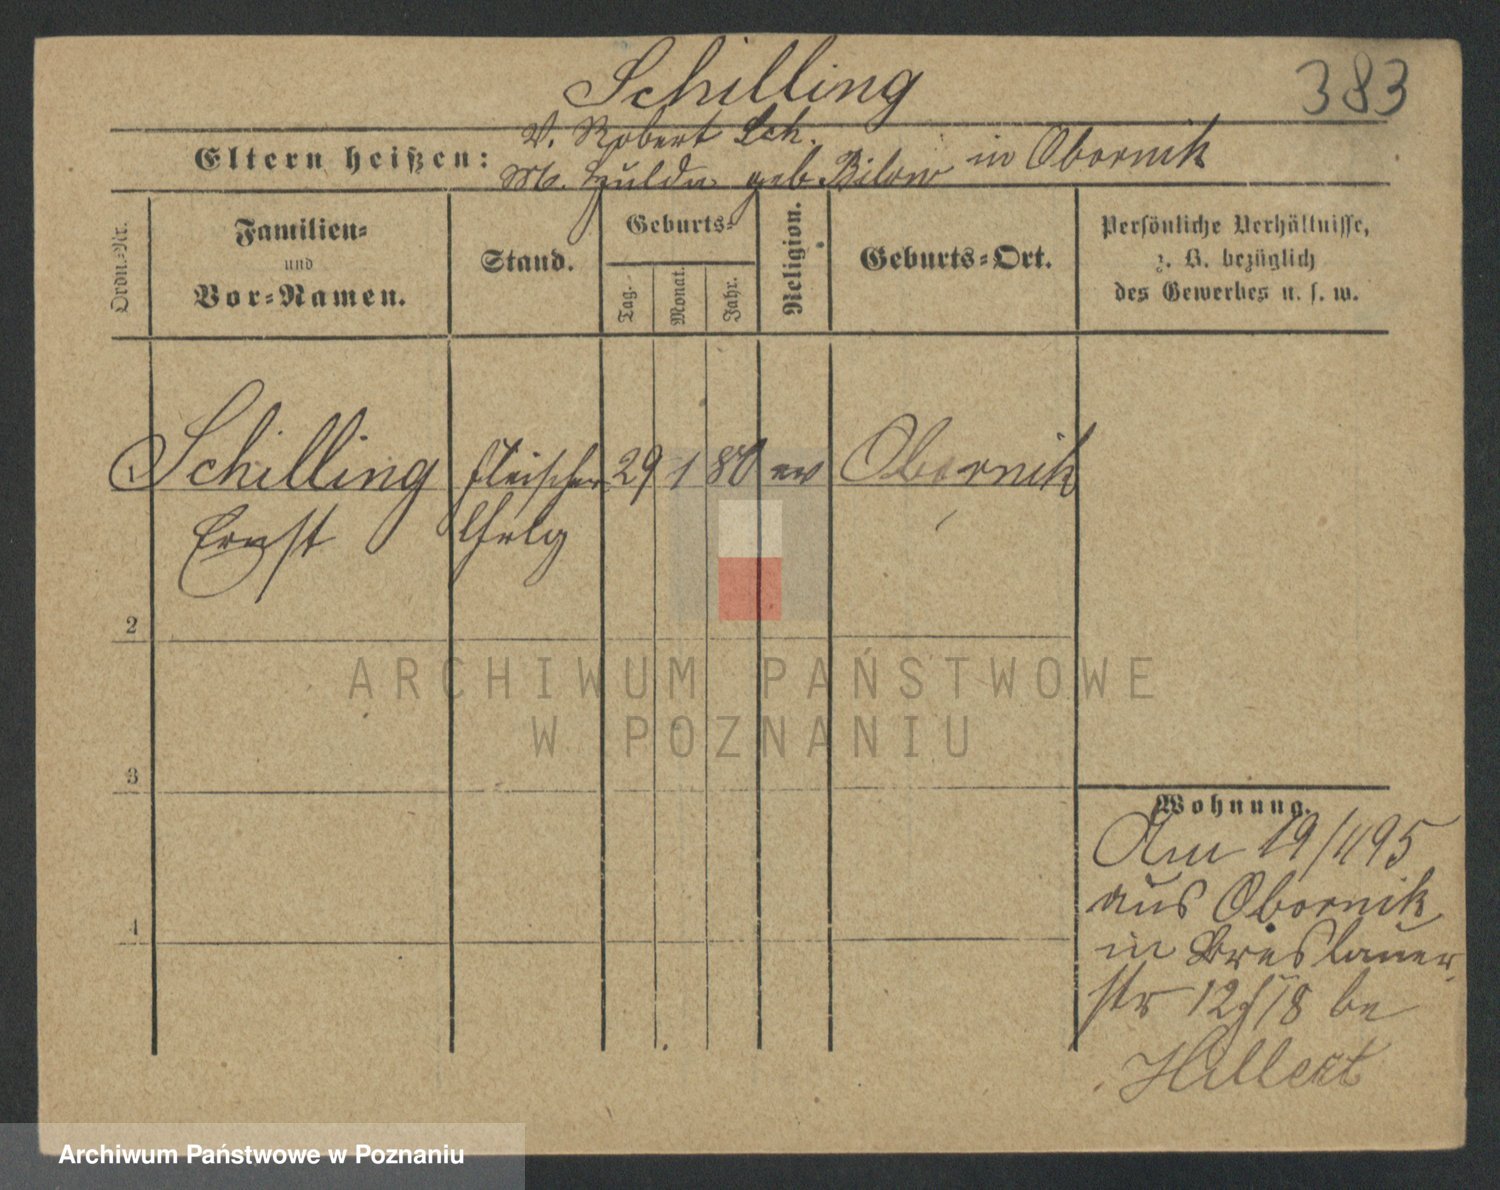 Schilling
383
V. Robert Sch.
Eltern heißen:
M. Hulda geb Bilow in Obornik
Ordn.-Nr.
Familien-
und
Vor-Namen.
Stand.
Geburts-
Tag.
Monat.
Jahr.
Religion.
Geburts-Ort.
Persönliche Verhältnisse,
z. B. bezüglich
des Gewerbes u. s. w.
Schilling Fleischer 29 1 80 ev Obornik
Ernst
2
ARCHIWUM PAŃSTWOWE
W POZNANIU
3
Wohnung.
Am 19/1195
aus Obornik
4
in Breslauer
str 12 /18 be
Hillert
Archiwum Państwowe w Poznaniu